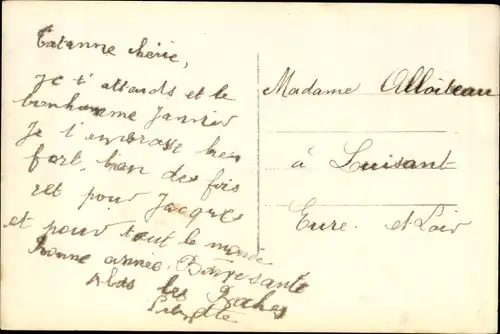 Tatanne chérie,
je t'attends et le
bonhomme Janvier
Je t'embrasse bien
fort, bien des fois
et pour Jacques
et pour tout le monde
Bonne année. Bonne santé
les
Madame Alloiteau
à Luisant
Eure et Loir